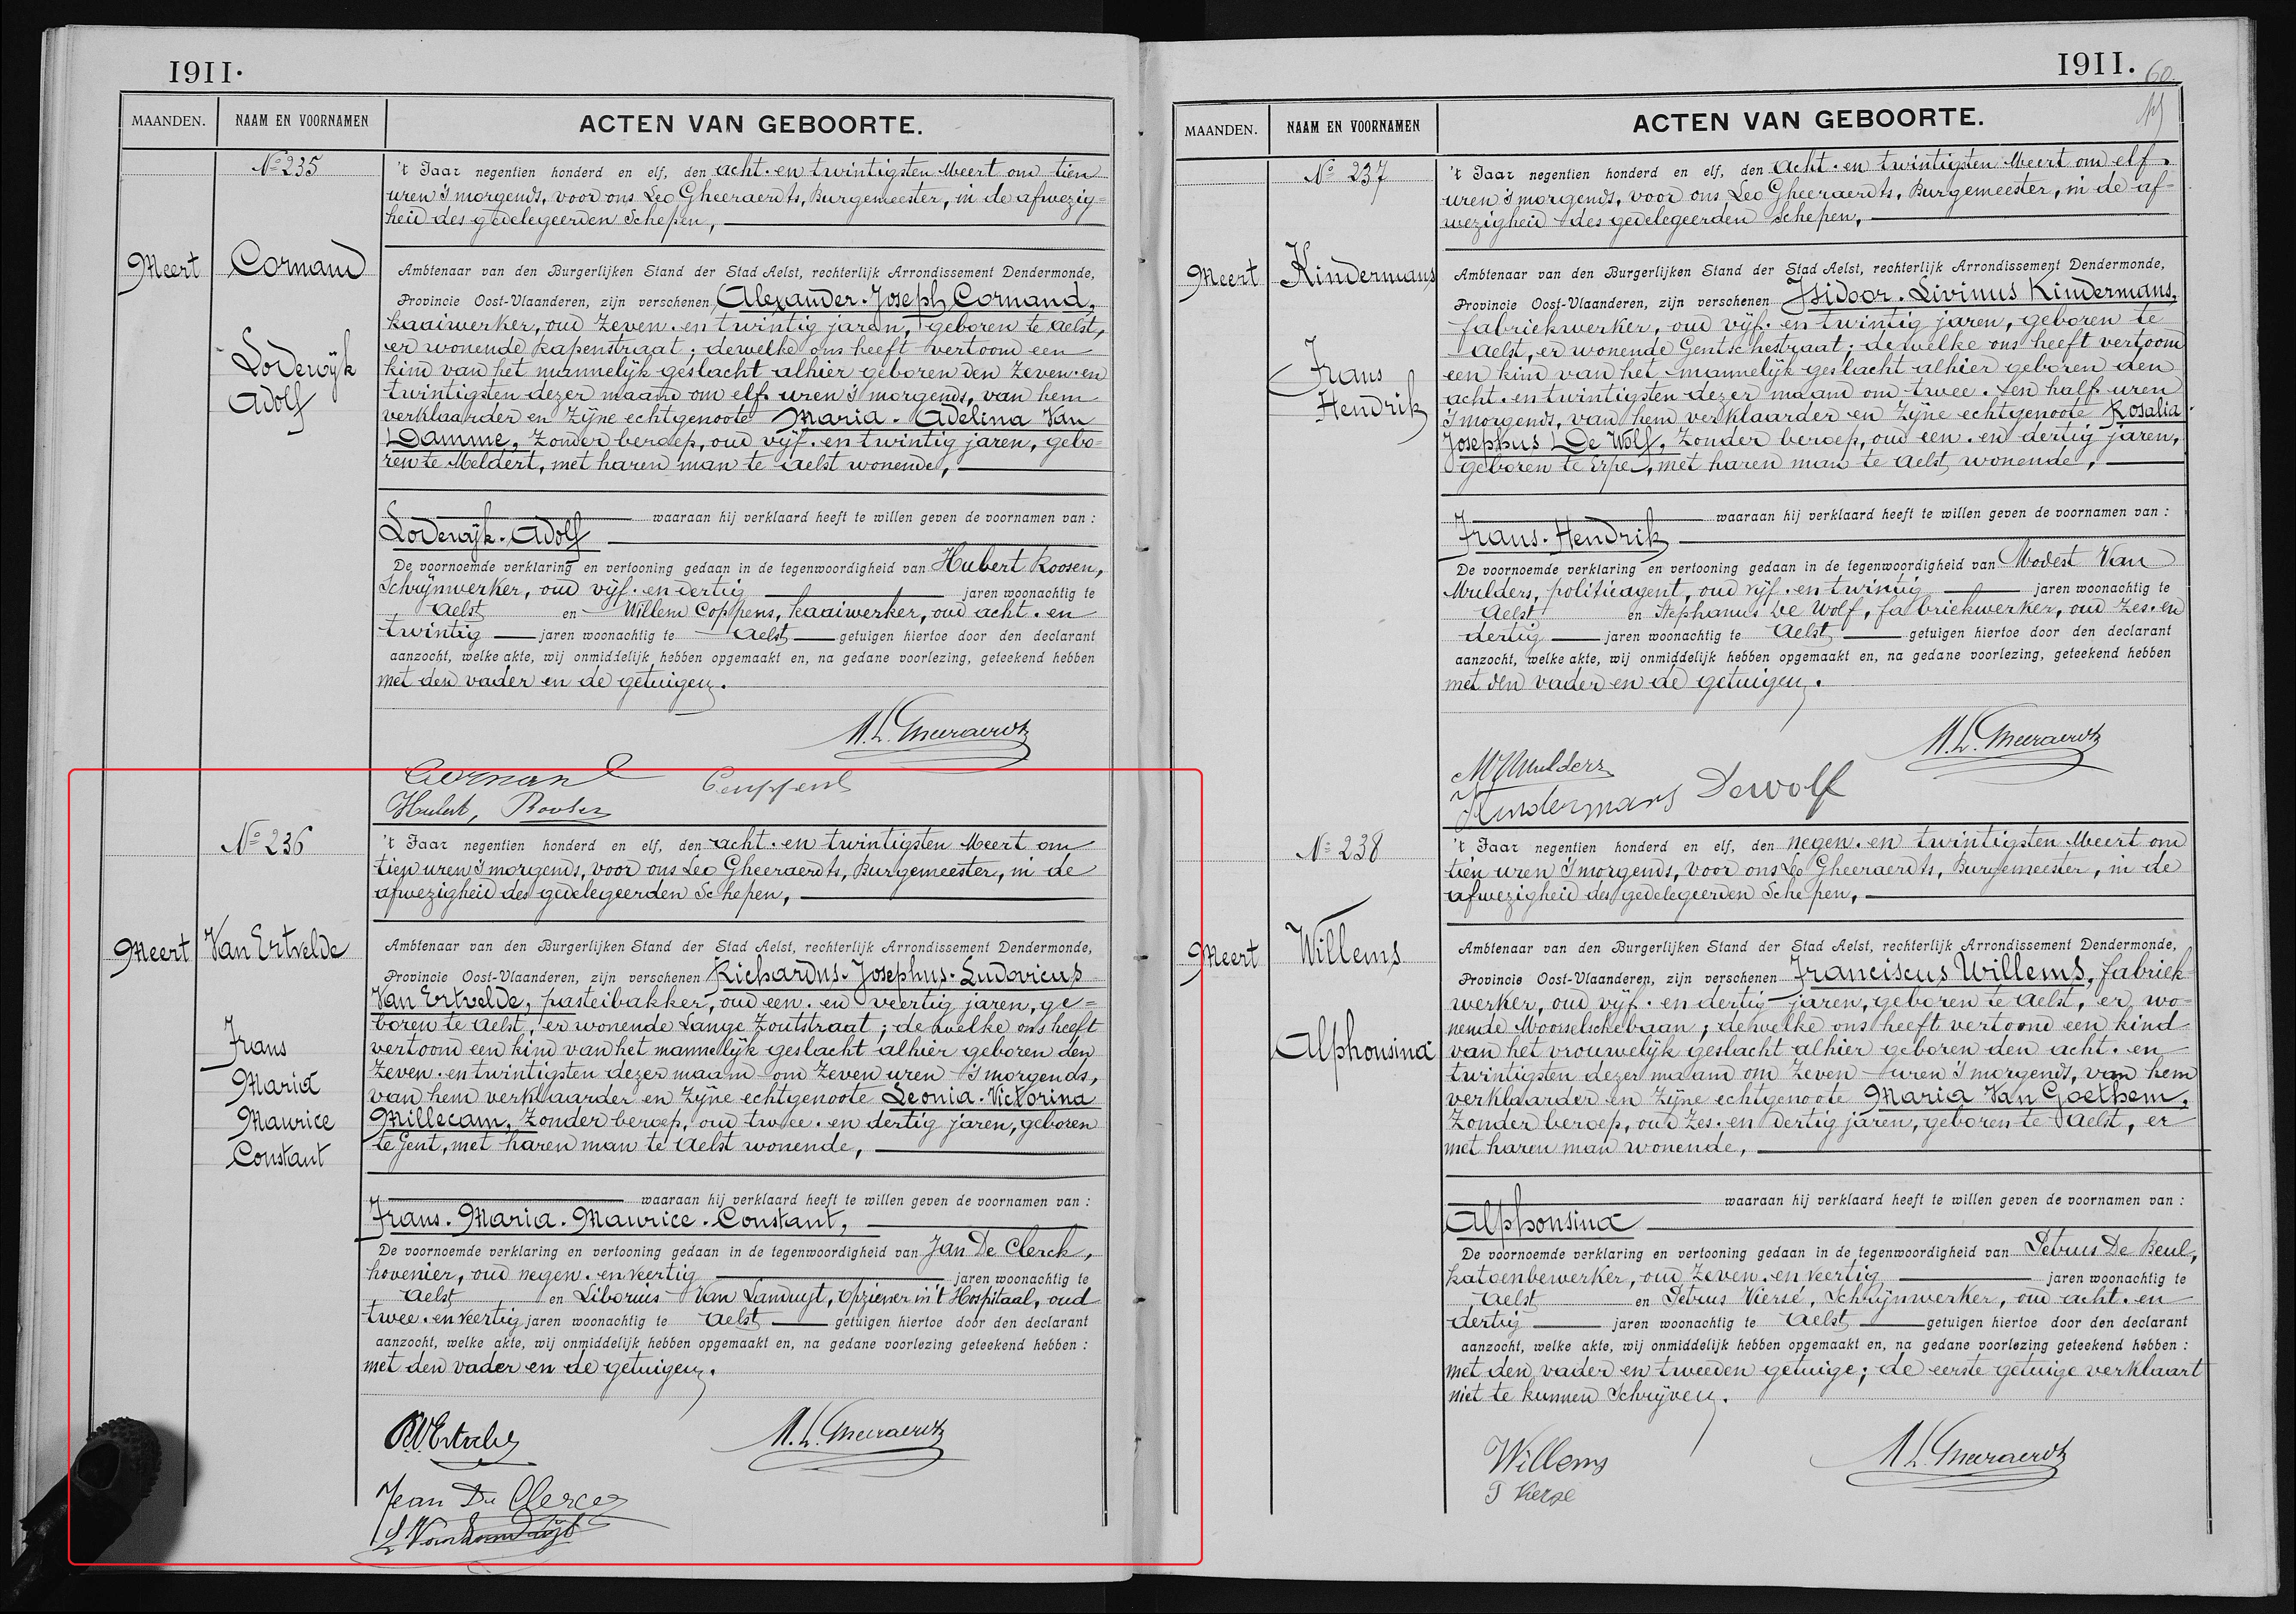 1911.
MAANDEN.
NAAM EN VOORNAMEN
ACTEN VAN GEBOORTE.
No 235
Meert
Cornand
Lodewijk
Adolf
't Jaar negentien honderd en elf, den acht-en twintigsten Meert om tien
uren 's morgends, voor ons Leo Gheeraerdts, Burgemeester, in de afwezig=
heid des gedelegeerden Schepen,
Ambtenaar van den Burgerlijken Stand der Stad Aelst, rechterlijk Arrondissement Dendermonde,
Provincie Oost-Vlaanderen, zijn verschenen Alexander-Joseph Cornand,
kaaiwerker, oud zeven-en twintig jaren, geboren te Aelst,
er wonende Kapenstraat; dewelke ons heeft vertoond een
kind van het mannelijk geslacht alhier geboren den zeven-en
twintigsten dezer maand om elf uren 's morgends, van hem
verklaarder en zijne echtgenoote Maria-Adelina Van
Damme, zonder beroep, oud vijf-en twintig jaren, gebo=
ren te Meldert, met haren man te Aelst wonende,
waaraan hij verklaard heeft te willen geven de voornamen van :
Lodewijk-Adolf
De voornoemde verklaring en vertooning gedaan in de tegenwoordigheid van Hubert Roosen,
Schrijnwerker, oud vijf-en dertig jaren woonachtig te
Aelst en Willem Coppens, kaaiwerker, oud acht-en
twintig jaren woonachtig te Aelst getuigen hiertoe door den declarant
aanzocht, welke akte, wij onmiddelijk hebben opgemaakt en, na gedane voorlezing, geteekend hebben
met den vader en de getuigen.
M.L. Gheeraerdts
Cornand Couppens
Hubert, Roosen
No 236
Meert
Van Ertvelde
Frans
Maria
Maurice
Constant
't Jaar negentien honderd en elf, den acht-en twintigsten Meert om
tien uren 's morgends, voor ons Leo Gheeraerdts, Burgemeester, in de
afwezigheid des gedelegeerden Schepen,
Ambtenaar van den Burgerlijken Stand der Stad Aelst, rechterlijk Arrondissement Dendermonde,
Provincie Oost-Vlaanderen, zijn verschenen Richardus-Josephus-Ludovicus
Van Ertvelde, pasteibakker, oud een-en veertig jaren, ge=
boren te Aelst, er wonende Lange Zoutstraat; dewelke ons heeft
vertoond een kind van het mannelijk geslacht alhier geboren den
zeven-en twintigsten dezer maand om zeven uren 's morgends,
van hem verklaarder en zijne echtgenoote Leonia-Victorina
Millecam, zonder beroep, oud twee-en dertig jaren, geboren
te Gent, met haren man te Aelst wonende,
waaraan hij verklaard heeft te willen geven de voornamen van :
Frans-Maria-Maurice-Constant,
De voornoemde verklaring en vertooning gedaan in de tegenwoordigheid van Jan De Clerck,
hovenier, oud negen-en veertig jaren woonachtig te
Aelst en Liborius Van Landuyt, opziener in 't Hospitaal, oud
twee-en veertig jaren woonachtig te Aelst getuigen hiertoe door den declarant
aanzocht, welke akte, wij onmiddelijk hebben opgemaakt en, na gedane voorlezing geteekend hebben :
met den vader en de getuigen.
R.V.Ertvelde M.L. Gheeraerdts
Jean De Clercq
L Van Landuyt
1911.
60.
MAANDEN.
NAAM EN VOORNAMEN
ACTEN VAN GEBOORTE.
No 237
Meert
Kindermans
Frans
Hendrik
't Jaar negentien honderd en elf, den acht-en twintigsten Meert om elf
uren 's morgends, voor ons Leo Gheeraerdts, Burgemeester, in de af=
wezigheid des gedelegeerden Schepen,
Ambtenaar van den Burgerlijken Stand der Stad Aelst, rechterlijk Arrondissement Dendermonde,
Provincie Oost-Vlaanderen, zijn verschenen Isidoor-Livinus Kindermans,
fabriekwerker, oud vijf-en twintig jaren, geboren te
Aelst, er wonende Gentschestraat; dewelke ons heeft vertoond
een kind van het mannelijk geslacht alhier geboren den
acht-en twintigsten dezer maand om twee-en half uren
's morgends, van hem verklaarder en zijne echtgenoote Rosalia-
Josephus De Wolf, zonder beroep, oud een-en dertig jaren,
geboren te Erpe, met haren man te Aelst wonende,
waaraan hij verklaard heeft te willen geven de voornamen van :
Frans-Hendrik
De voornoemde verklaring en vertooning gedaan in de tegenwoordigheid van Modest Van
Mulders, politieagent, oud vijf-en twintig jaren woonachtig te
Aelst en Stephanus De Wolf, fabriekwerker, oud zes-en
dertig jaren woonachtig te Aelst getuigen hiertoe door den declarant
aanzocht, welke akte, wij onmiddelijk hebben opgemaakt en, na gedane voorlezing, geteekend hebben
met den vader en de getuigen.
M.L. Gheeraerdts
M V Mulders
Kindermans Dewolf
No 238
Meert
Willems
Alphonsina
't Jaar negentien honderd en elf, den negen-en twintigsten Meert om
tien uren 's morgends, voor ons Leo Gheeraerdts, Burgemeester, in de
afwezigheid des gedelegeerden Schepen,
Ambtenaar van den Burgerlijken Stand der Stad Aelst, rechterlijk Arrondissement Dendermonde,
Provincie Oost-Vlaanderen, zijn verschenen Franciscus Willems, fabriek-
werker, oud vijf-en dertig jaren, geboren te Aelst, er wo=
nende Moorselschebaan; dewelke ons heeft vertoond een kind
van het vrouwelijk geslacht alhier geboren den acht-en
twintigsten dezer maand om zeven uren 's morgends, van hem
verklaarder en zijne echtgenoote Maria Van Goethem,
zonder beroep, oud zes-en dertig jaren, geboren te Aelst, er
met haren man wonende,
waaraan hij verklaard heeft te willen geven de voornamen van :
Alphonsina
De voornoemde verklaring en vertooning gedaan in de tegenwoordigheid van Petrus De Beul,
katoenbewerker, oud zeven-en veertig jaren woonachtig te
Aelst en Petrus Viersé, Schrijnwerker, oud acht-en
dertig jaren woonachtig te Aelst getuigen hiertoe door den declarant
aanzocht, welke akte, wij onmiddelijk hebben opgemaakt en, na gedane voorlezing geteekend hebben :
met den vader en tweeden getuige; de eerste getuige verklaart
niet te kunnen schrijven.
Willems M L. Gheeraerdts